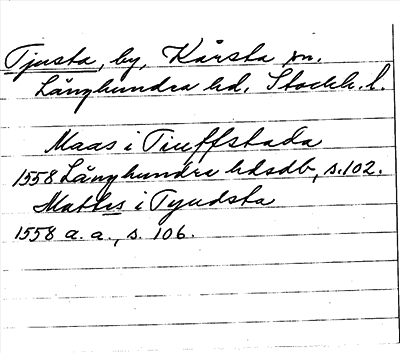 Tjusta, by, Kårsta sn.
Långhundra hd. Stockh. l.
Maas i Tiuffstada
1558 Långhundra hdsdb, s. 102.
Mattes i Tyudsta
1558 a. a., s. 106.